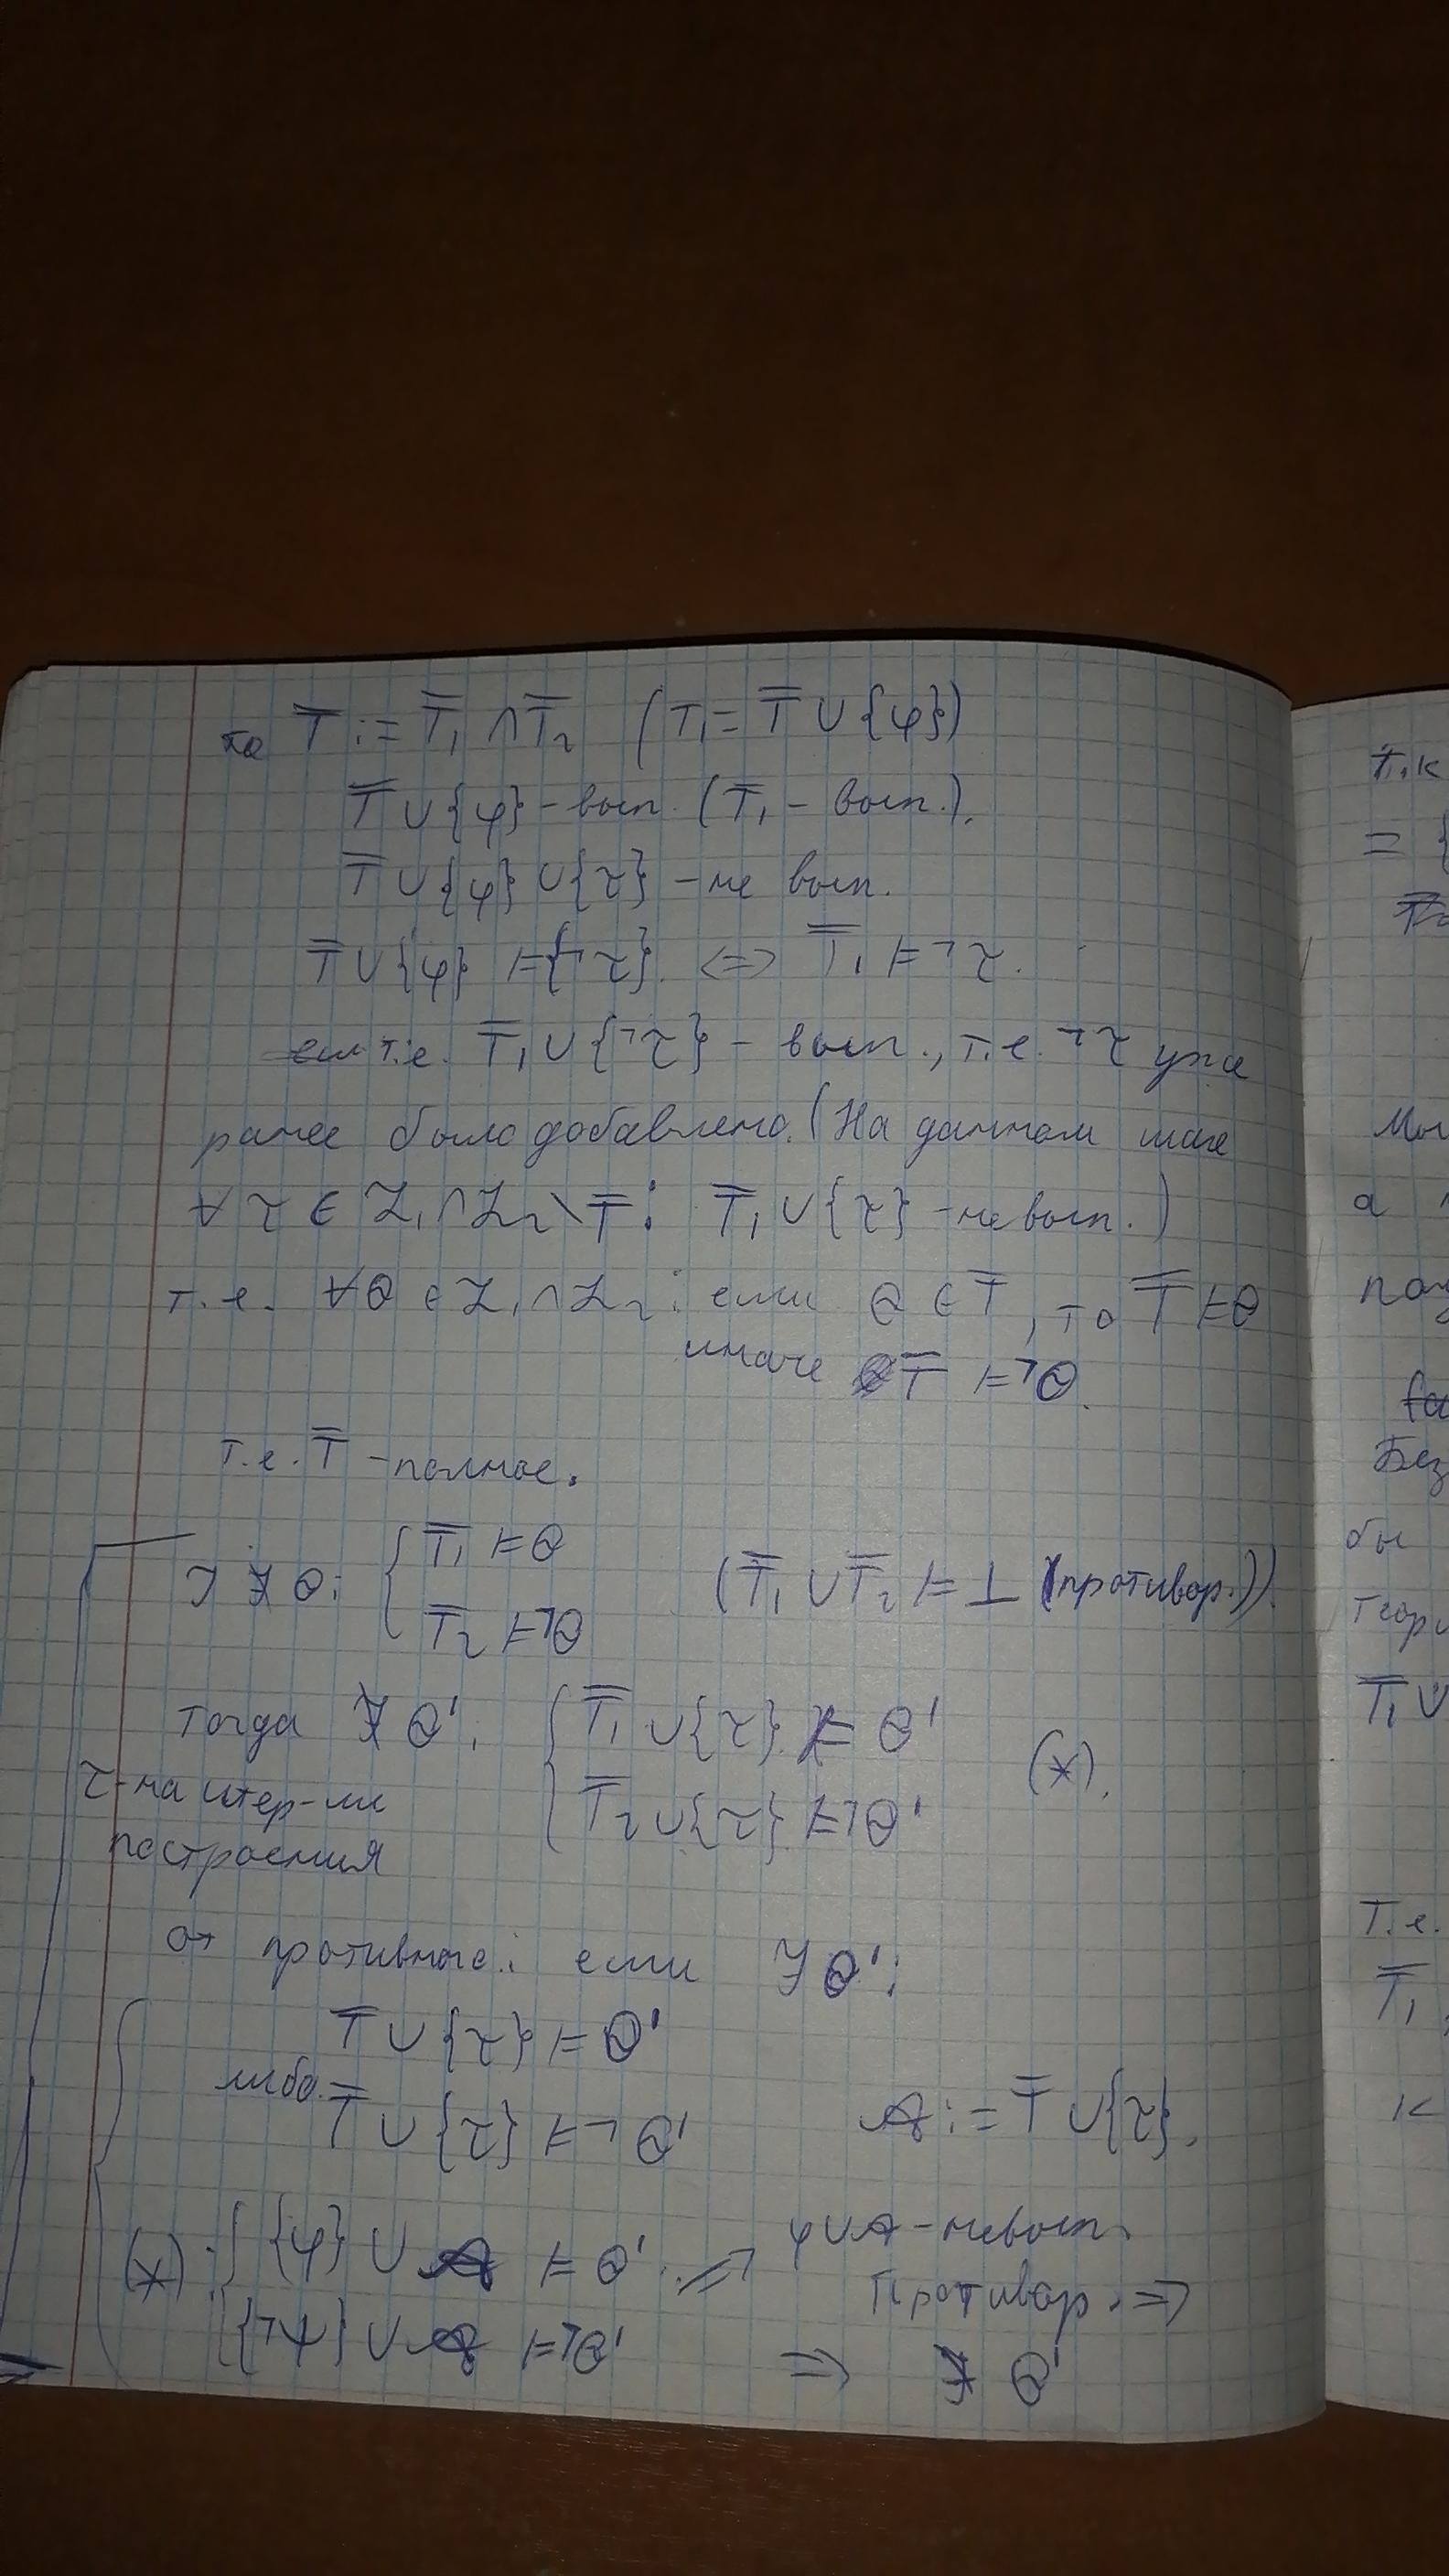 то T̅ := T̅₁ ∩ T̅₂ (T₁ = T̅ ∪ {φ})
T̅ ∪ {φ} - вып. (T̅₁ - вып.).
T̅ ∪ {φ} ∪ {τ} - не вып.
T̅ ∪ {φ} ⊨ {¬τ}. <=> T̅₁ ⊨ ¬τ.
т.е. T̅₁ ∪ {¬τ} - вып., т.е. ¬τ уже
ранее было добавлено. (На данном шаге
∀ τ ∈ ℒ₁ ∩ ℒ₂ \ T̅ : T̅₁ ∪ {τ} - не вып.)
т.е. ∀θ ∈ ℒ₁ ∩ ℒ₂ : если θ ∈ T̅, то T̅ ⊨ θ
иначе T̅ ⊨ ¬θ.
т.е. T̅ - полное.
∄ θ: { T̅₁ ⊨ θ (T̅₁ ∪ T̅₂ ⊨ ⊥ (противор.))
T̅₂ ⊨ ¬θ
Тогда ∄ θ': { T̅₁ ∪ {τ} ⊨ θ' (*).
τ - на итер-ии
T̅₂ ∪ {τ} ⊨ ¬θ'
построения
от противного: если ∃ θ':
T̅ ∪ {τ} ⊨ θ'
либо
T̅ ∪ {τ} ⊨ ¬θ' A := T̅ ∪ {τ}.
(*) : { {φ} ∪ A ⊨ θ'. => φ ∪ A - невып.
Противор. =>
{¬ψ} ∪ A ⊨ ¬θ' => ∄ θ'
Т.к
= {
Мы
а
Без
бы
теор
T̅₁ ∪
Т.е.
T̅₁